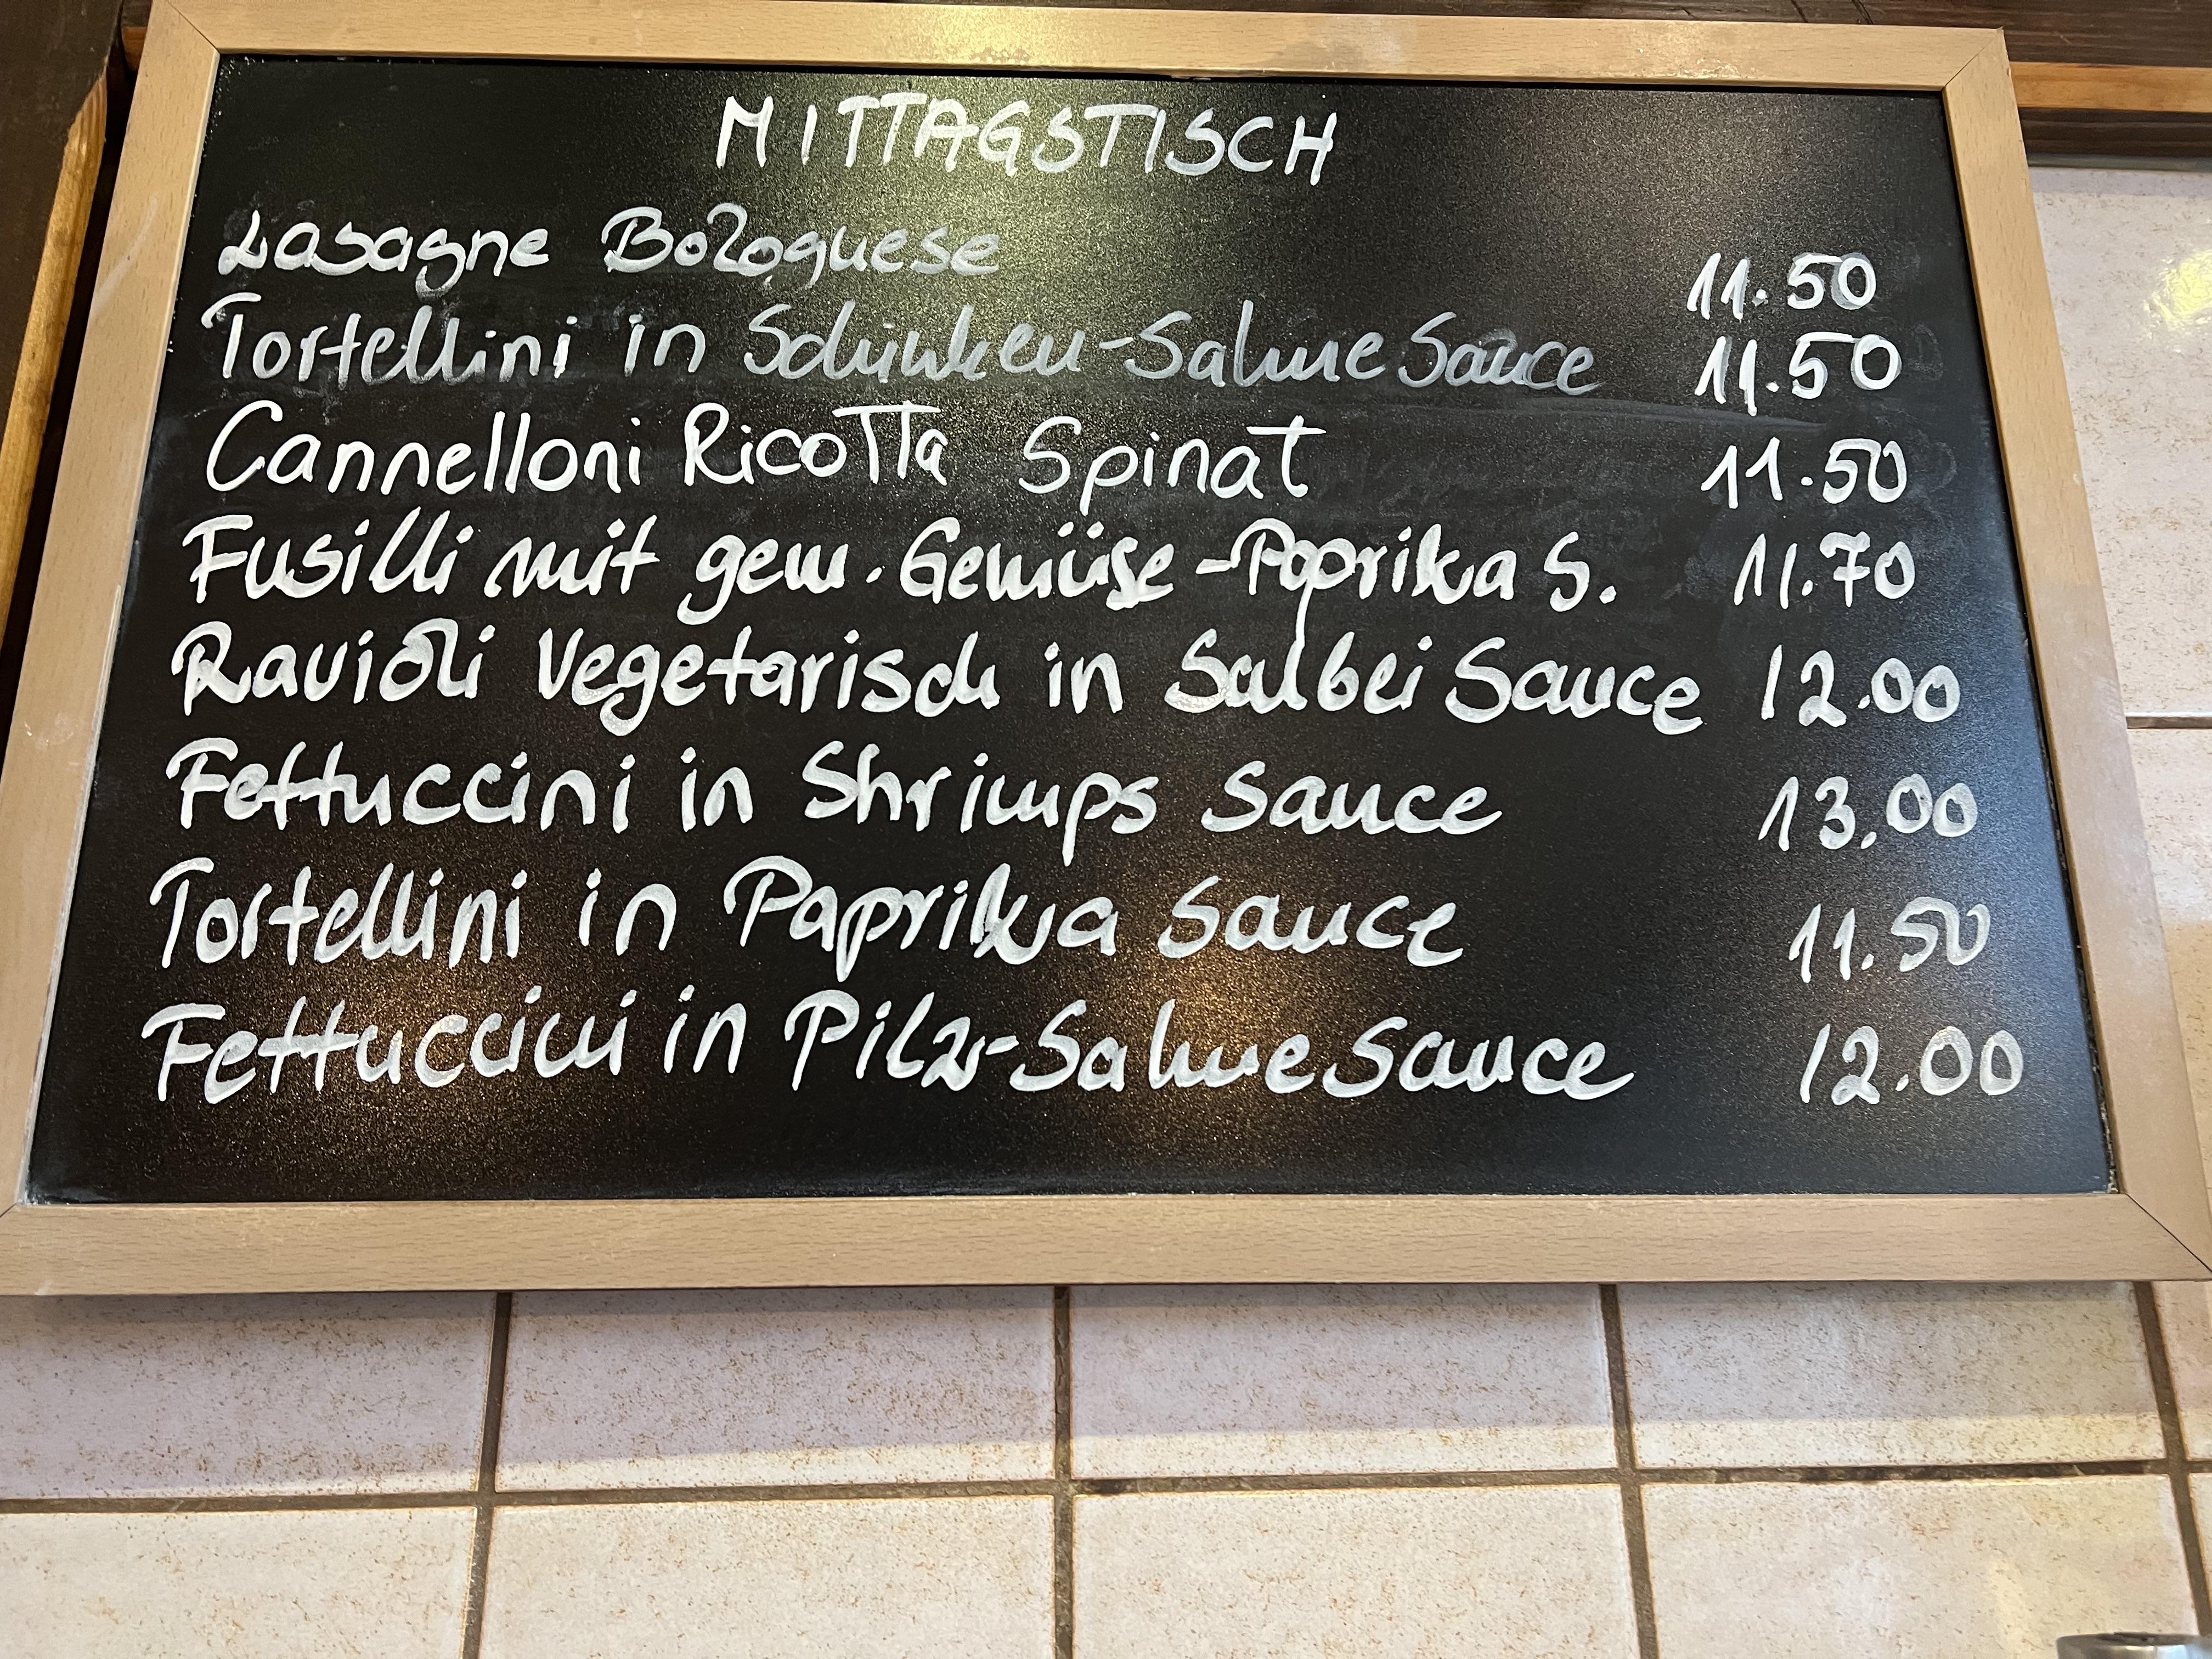 MITTAGSTISCH
Lasagne Bolognese 11.50
Tortellini in Schinken-Sahne Sauce 11.50
Cannelloni Ricotta Spinat 11.50
Fusilli mit gem. Gemüse-Paprika S. 11.70
Ravioli Vegetarisch in Salbei Sauce 12.00
Fettuccini in Shrimps Sauce 13.00
Tortellini in Paprika Sauce 11.50
Fettuccini in Pilz-Sahne Sauce 12.00